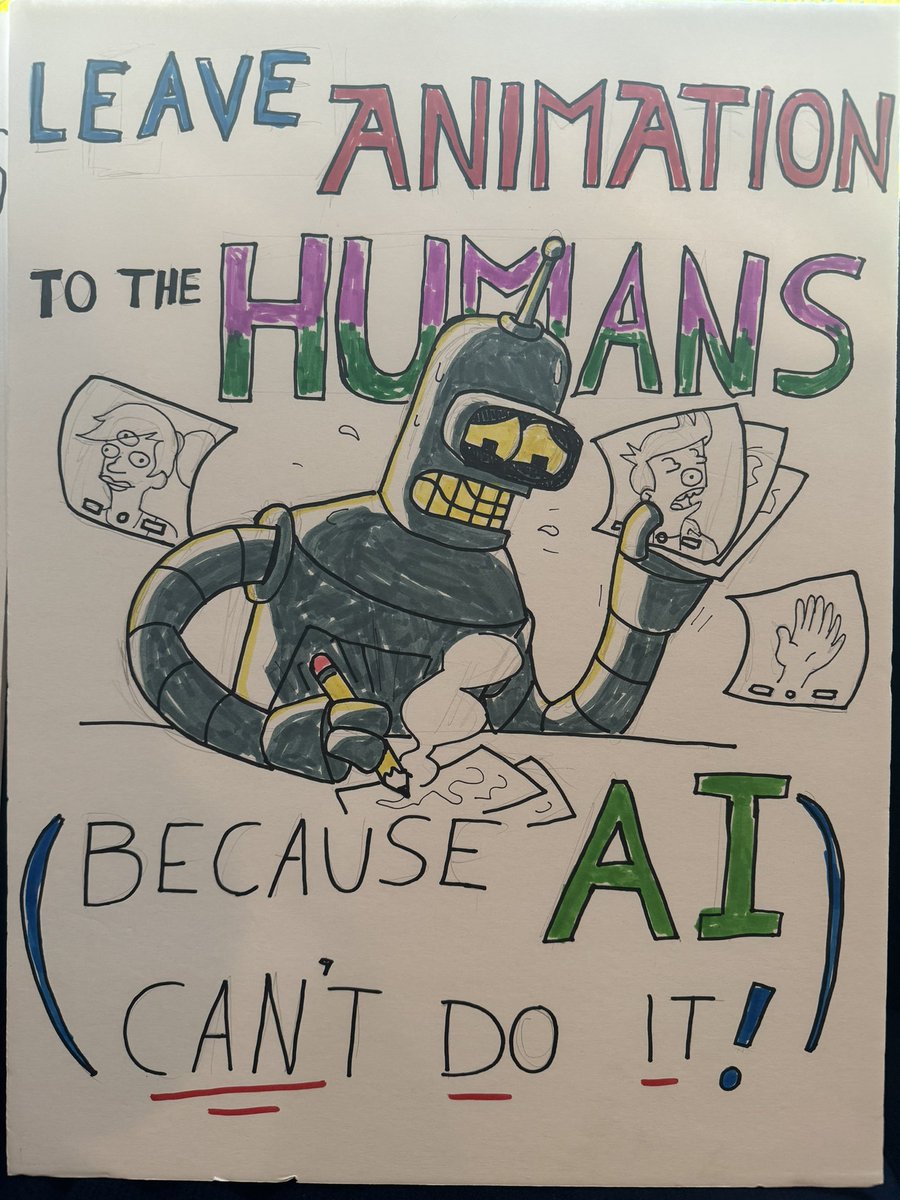 LEAVE ANIMATION
TO THE HUMANS
(BECAUSE AI
CAN'T DO IT!)